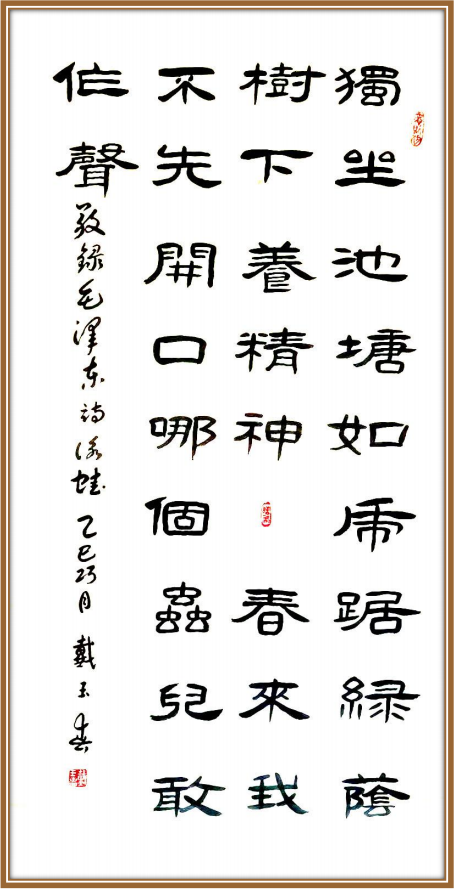 獨坐池塘如虎踞綠蔭
樹下養精神春來我
不先開口哪個蟲兒敢
作聲
敬録毛泽东诗咏蛙 乙巳巧月 戴玉春